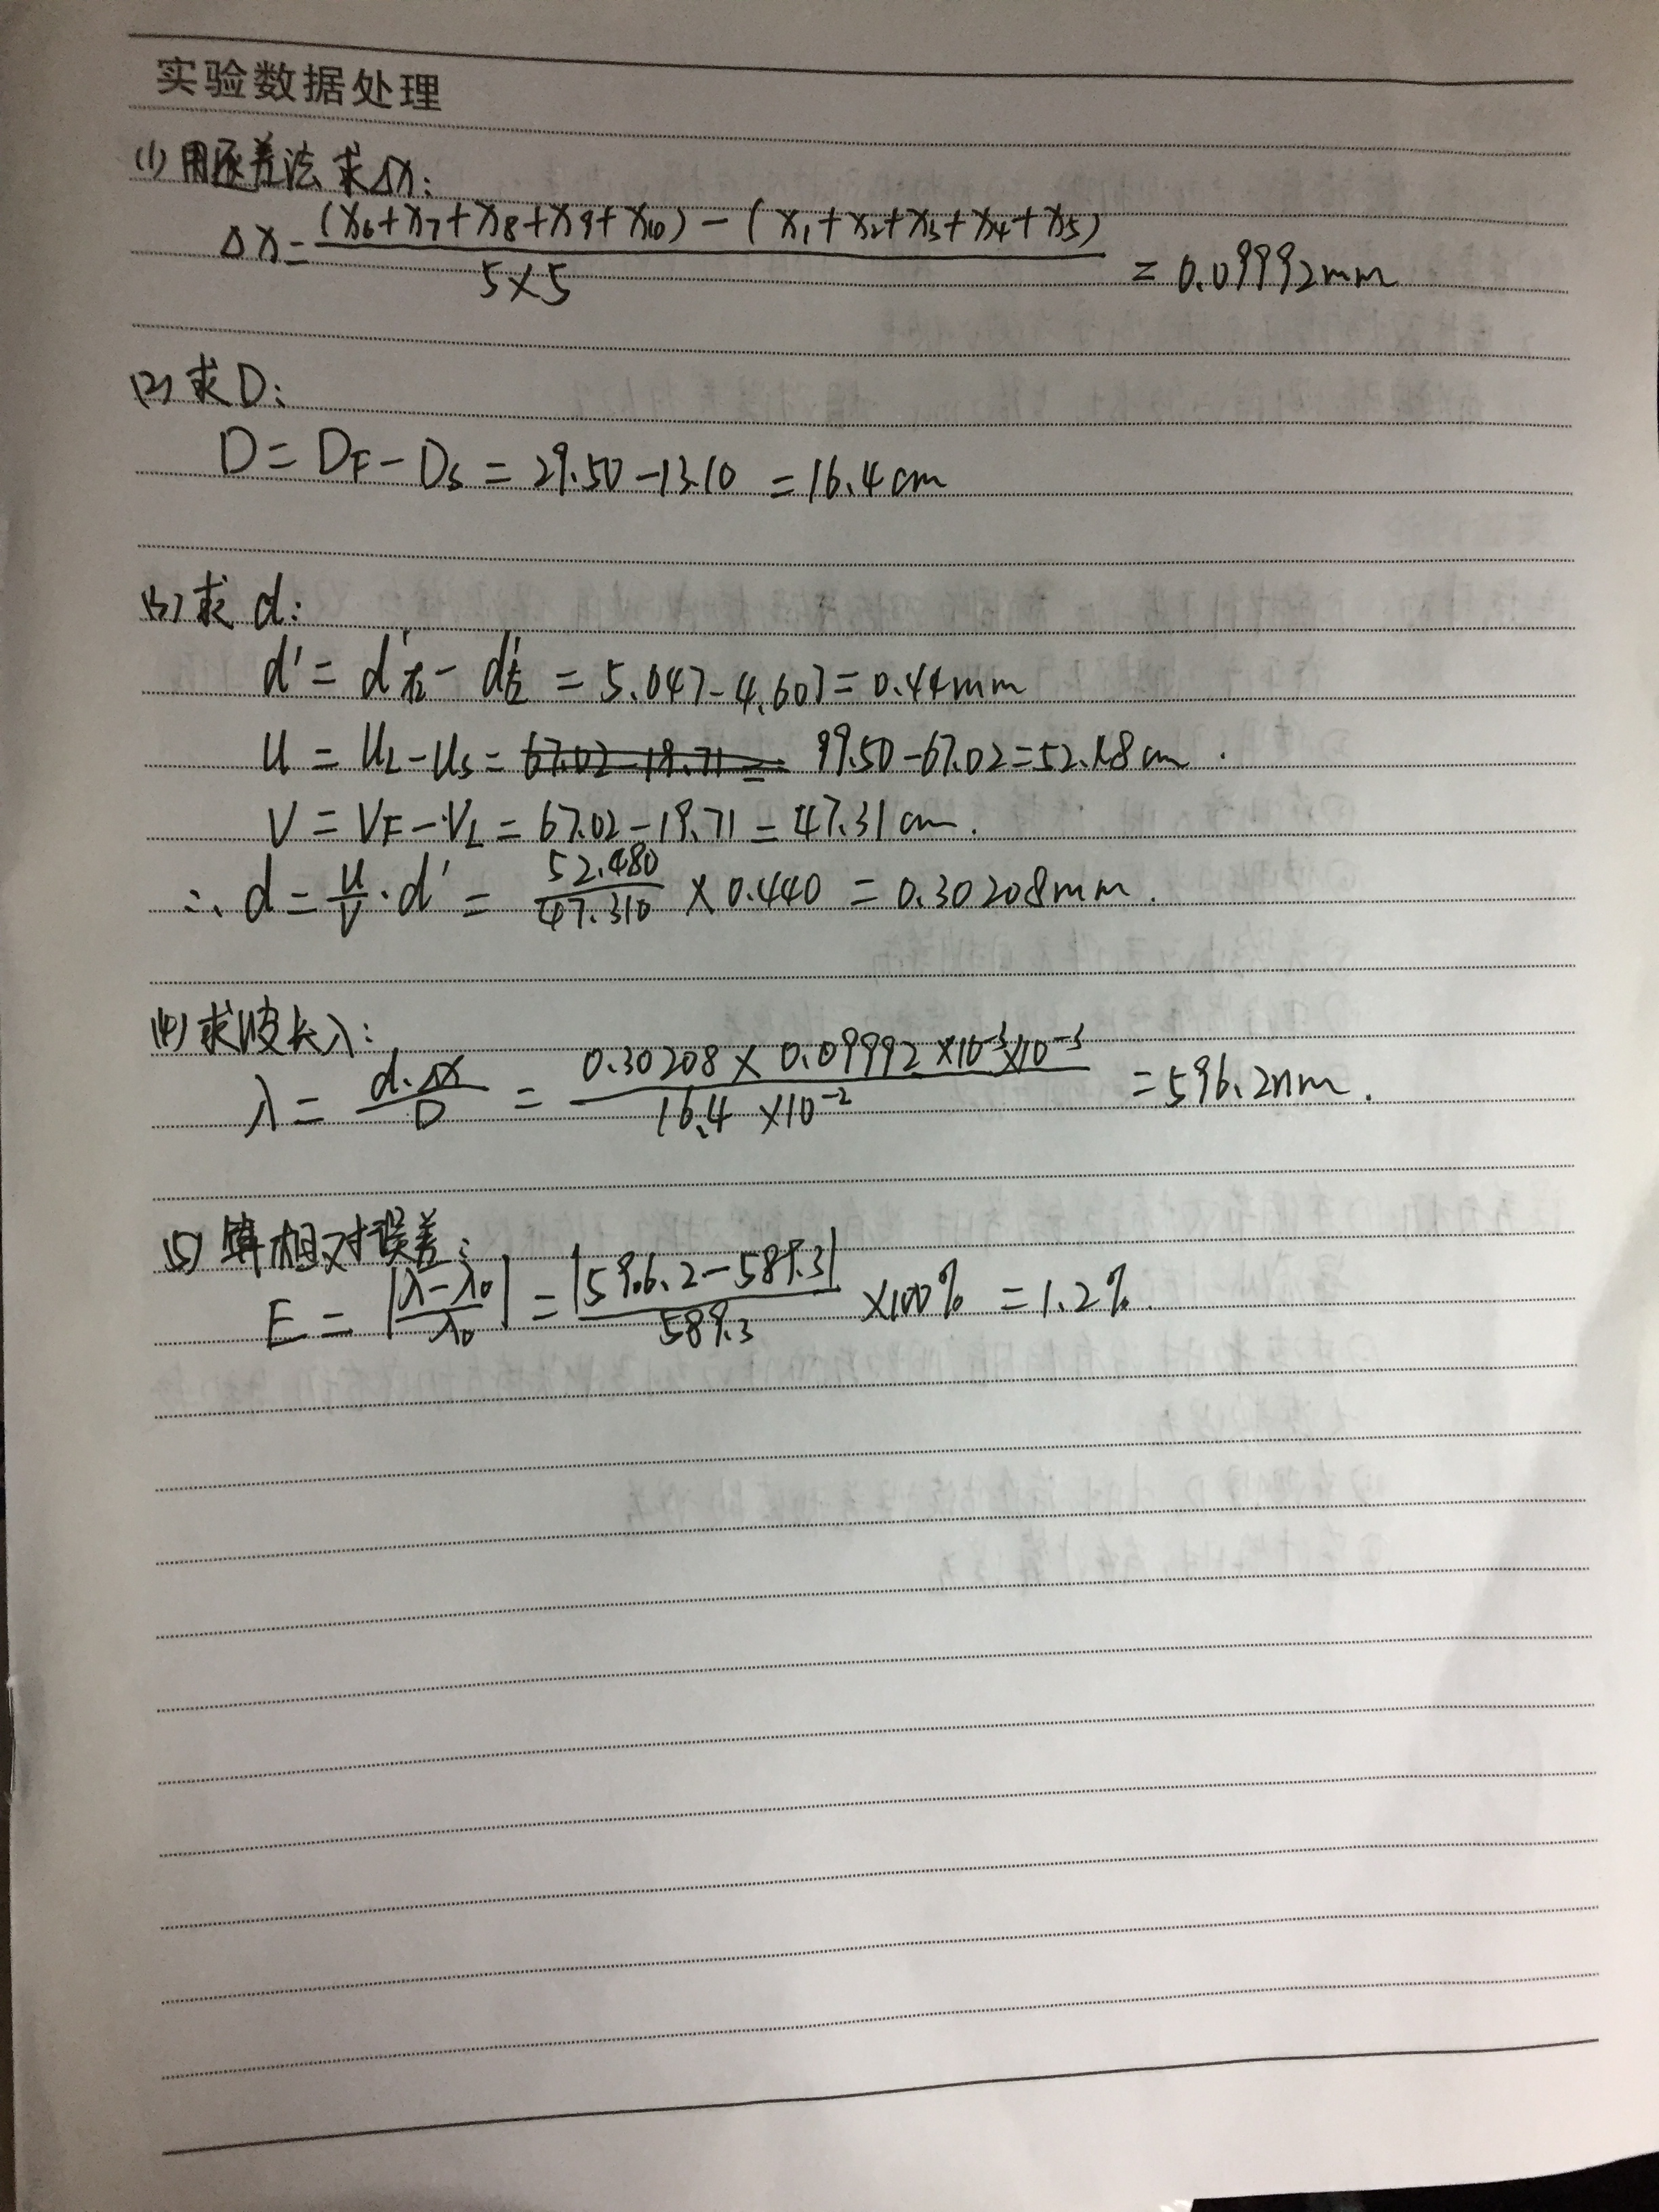 实验数据处理
(1) 用逐差法求Δx:
Δx = (x6+x7+x8+x9+x10) - (x1+x2+x3+x4+x5) / 5×5 = 0.09992mm
(2) 求D:
D = DF - DS = 29.50 - 13.10 = 16.4cm
(3) 求d:
d' = d'右 - d'左 = 5.047 - 4.607 = 0.44mm
u = uL - uS = 67.02 - 19.71 = 99.50 - 67.02 = 52.48cm.
V = VF - VL = 67.02 - 19.71 = 47.31cm.
∴ d = u/v · d' = 52.480/47.310 × 0.440 = 0.30208mm.
(4) 求波长λ:
λ = d·Δx/D = 0.30208 × 0.09992 ×10⁻³×10⁻³ / 16.4 ×10⁻² = 596.2nm.
(5) 算相对误差:
E = |λ-λ0/λ0| = |596.2-589.3|/589.3 ×100% = 1.2%